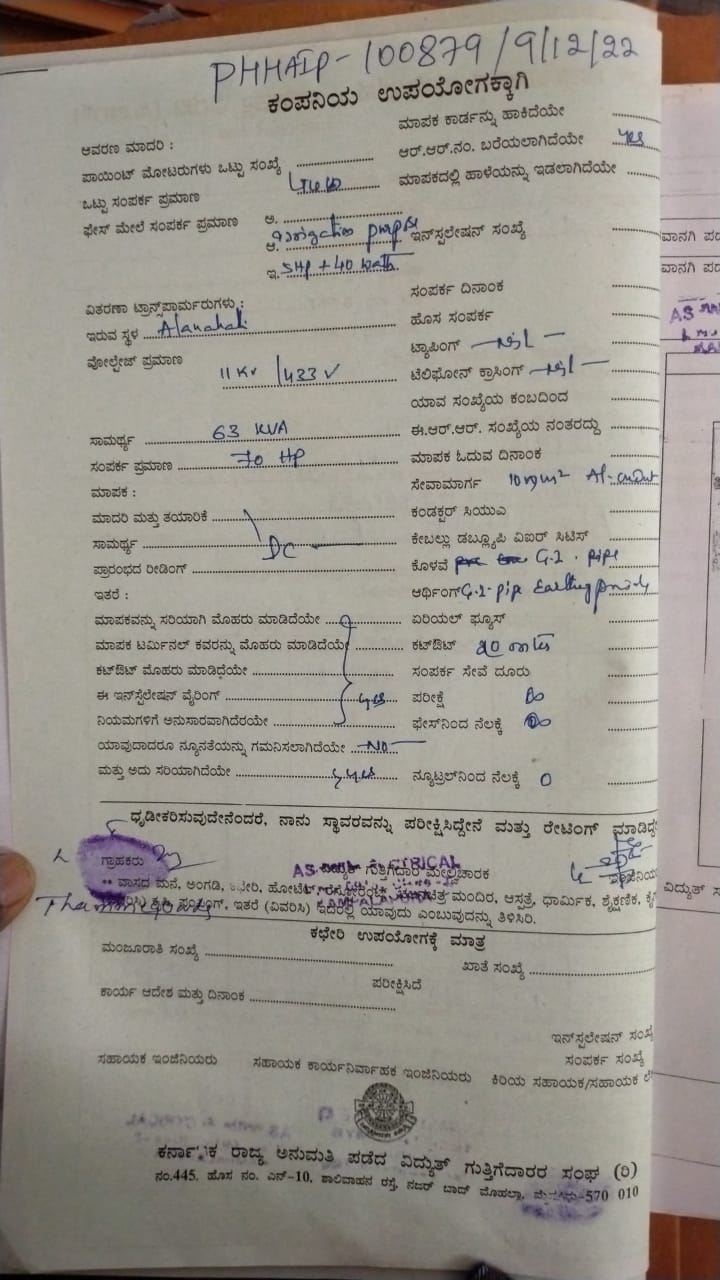 PHHAIP-100879/9/12/22
ಕಂಪನಿಯ ಉಪಯೋಗಕ್ಕಾಗಿ
ಆವರಣ ಮಾದರಿ :
ಮಾಪಕ ಕಾರ್ಡನ್ನು ಹಾಕಿದೆಯೇ
ಪಾಯಿಂಟ್ ಮೋಟರುಗಳು ಒಟ್ಟು ಸಂಖ್ಯೆ
ಆರ್.ಆರ್.ನಂ. ಬರೆಯಲಾಗಿದೆಯೇ yes
ಒಟ್ಟು ಸಂಪರ್ಕ ಪ್ರಮಾಣ
ಮಾಪಕದಲ್ಲಿ ಹಾಳೆಯನ್ನು ಇಡಲಾಗಿದೆಯೇ
ಫೇಸ್ ಮೇಲೆ ಸಂಪರ್ಕ ಪ್ರಮಾಣ ಅ.
ಆ. Irrigation purpose ಇನ್‌ಸ್ಪಲೇಷನ್ ಸಂಖ್ಯೆ
ಇ. 5HP + 40 watts
ವಿತರಣಾ ಟ್ರಾನ್ಸ್‌ಫಾರ್ಮರುಗಳು :
ಸಂಪರ್ಕ ದಿನಾಂಕ
ಇರುವ ಸ್ಥಳ Alanahali
ಹೊಸ ಸಂಪರ್ಕ
ವೋಲ್ಟೇಜ್ ಪ್ರಮಾಣ
ಟ್ಯಾಪಿಂಗ್ — Nil —
11 KV / 433 V
ಟೆಲಿಫೋನ್ ಕ್ರಾಸಿಂಗ್ — Nil —
ಯಾವ ಸಂಖ್ಯೆಯ ಕಂಬದಿಂದ
ಸಾಮರ್ಥ್ಯ 63 KVA
ಈ.ಆರ್.ಆರ್. ಸಂಖ್ಯೆಯ ನಂತರದ್ದು
ಸಂಪರ್ಕ ಪ್ರಮಾಣ 70 HP
ಮಾಪಕ ಓದುವ ದಿನಾಂಕ
ಮಾಪಕ :
ಸೇವಾಮಾರ್ಗ 10 mm²
ಮಾದರಿ ಮತ್ತು ತಯಾರಿಕೆ
ಕಂಡಕ್ಟರ್ ಸಿಯುಎ
ಸಾಮರ್ಥ್ಯ DC
ಕೇಬಲ್ಲು ಡಬ್ಲ್ಯೂಪಿ ವಿಐರ್ ಸಿಟಿಸ್
ಪ್ರಾರಂಭದ ರೀಡಿಂಗ್
ಕೊಳವೆ G.I. pipe
ಇತರೆ :
ಆರ್ಥಿಂಗ್ G.I. pipe Earthing
ಮಾಪಕವನ್ನು ಸರಿಯಾಗಿ ಮೊಹರು ಮಾಡಿದೆಯೇ
ಏರಿಯಲ್ ಫ್ಯೂಸ್
ಮಾಪಕ ಟರ್ಮಿನಲ್ ಕವರನ್ನು ಮೊಹರು ಮಾಡಿದೆಯೇ
ಕಟ್‌ಔಟ್ 20 mtrs
ಕಟ್‌ಔಟ್ ಮೊಹರು ಮಾಡಿದೆಯೇ
ಸಂಪರ್ಕ ಸೇವೆ ದೂರು
ಈ ಇನ್‌ಸ್ಟಲೇಷನ್ ವೈರಿಂಗ್ yes
ಪರೀಕ್ಷೆ
ನಿಯಮಗಳಿಗೆ ಅನುಸಾರವಾಗಿದೆರಯೇ
ಫೇಸ್‌ನಿಂದ ನೆಲಕ್ಕೆ
ಯಾವುದಾದರೂ ನ್ಯೂನತೆಯನ್ನು ಗಮನಿಸಲಾಗಿದೆಯೇ NO
ಮತ್ತು ಅದು ಸರಿಯಾಗಿದೆಯೇ yes
ನ್ಯೂಟ್ರಲ್‌ನಿಂದ ನೆಲಕ್ಕೆ 0
ಧೃಡೀಕರಿಸುವುದೇನೆಂದರೆ, ನಾನು ಸ್ಥಾವರವನ್ನು ಪರೀಕ್ಷಿಸಿದ್ದೇನೆ ಮತ್ತು ರೇಟಿಂಗ್
ಗ್ರಾಹಕರು
ಗುತ್ತಿಗೆದಾರ ಮೇಲ್ವಿಚಾರಕ
** ವಾಸದ ಮನೆ, ಅಂಗಡಿ, ಹೋಟೆಲ್, ಮಂದಿರ, ಆಸ್ಪತ್ರೆ, ಧಾರ್ಮಿಕ, ಶೈಕ್ಷಣಿಕ,
ಇತರೆ (ವಿವರಿಸಿ) ಇದರಲ್ಲಿ ಯಾವುದು ಎಂಬುವುದನ್ನು ತಿಳಿಸಿರಿ.
ಕಛೇರಿ ಉಪಯೋಗಕ್ಕೆ ಮಾತ್ರ
ಮಂಜೂರಾತಿ ಸಂಖ್ಯೆ
ಖಾತೆ ಸಂಖ್ಯೆ
ಪರೀಕ್ಷಿಸಿದೆ
ಕಾರ್ಯ ಆದೇಶ ಮತ್ತು ದಿನಾಂಕ
ಇನ್‌ಸ್ಪಲೇಷನ್
ಸಂಪರ್ಕ ಸಂಖ್ಯೆ
ಸಹಾಯಕ ಇಂಜಿನಿಯರು ಸಹಾಯಕ ಕಾರ್ಯನಿರ್ವಾಹಕ ಇಂಜಿನಿಯರು ಕಿರಿಯ ಸಹಾಯಕ/ಸಹಾಯಕ
ಕರ್ನಾಟಕ ರಾಜ್ಯ ಅನುಮತಿ ಪಡೆದ ವಿದ್ಯುತ್ ಗುತ್ತಿಗೆದಾರರ ಸಂಘ (ರಿ)
ನಂ.445, ಹೊಸ ನಂ. ಎನ್-10, ಶಾಲಿವಾಹನ ರಸ್ತೆ, ನಜರ್ ಬಾದ್ ಮೊಹಲ್ಲಾ, ಮೈಸೂರು-570 010